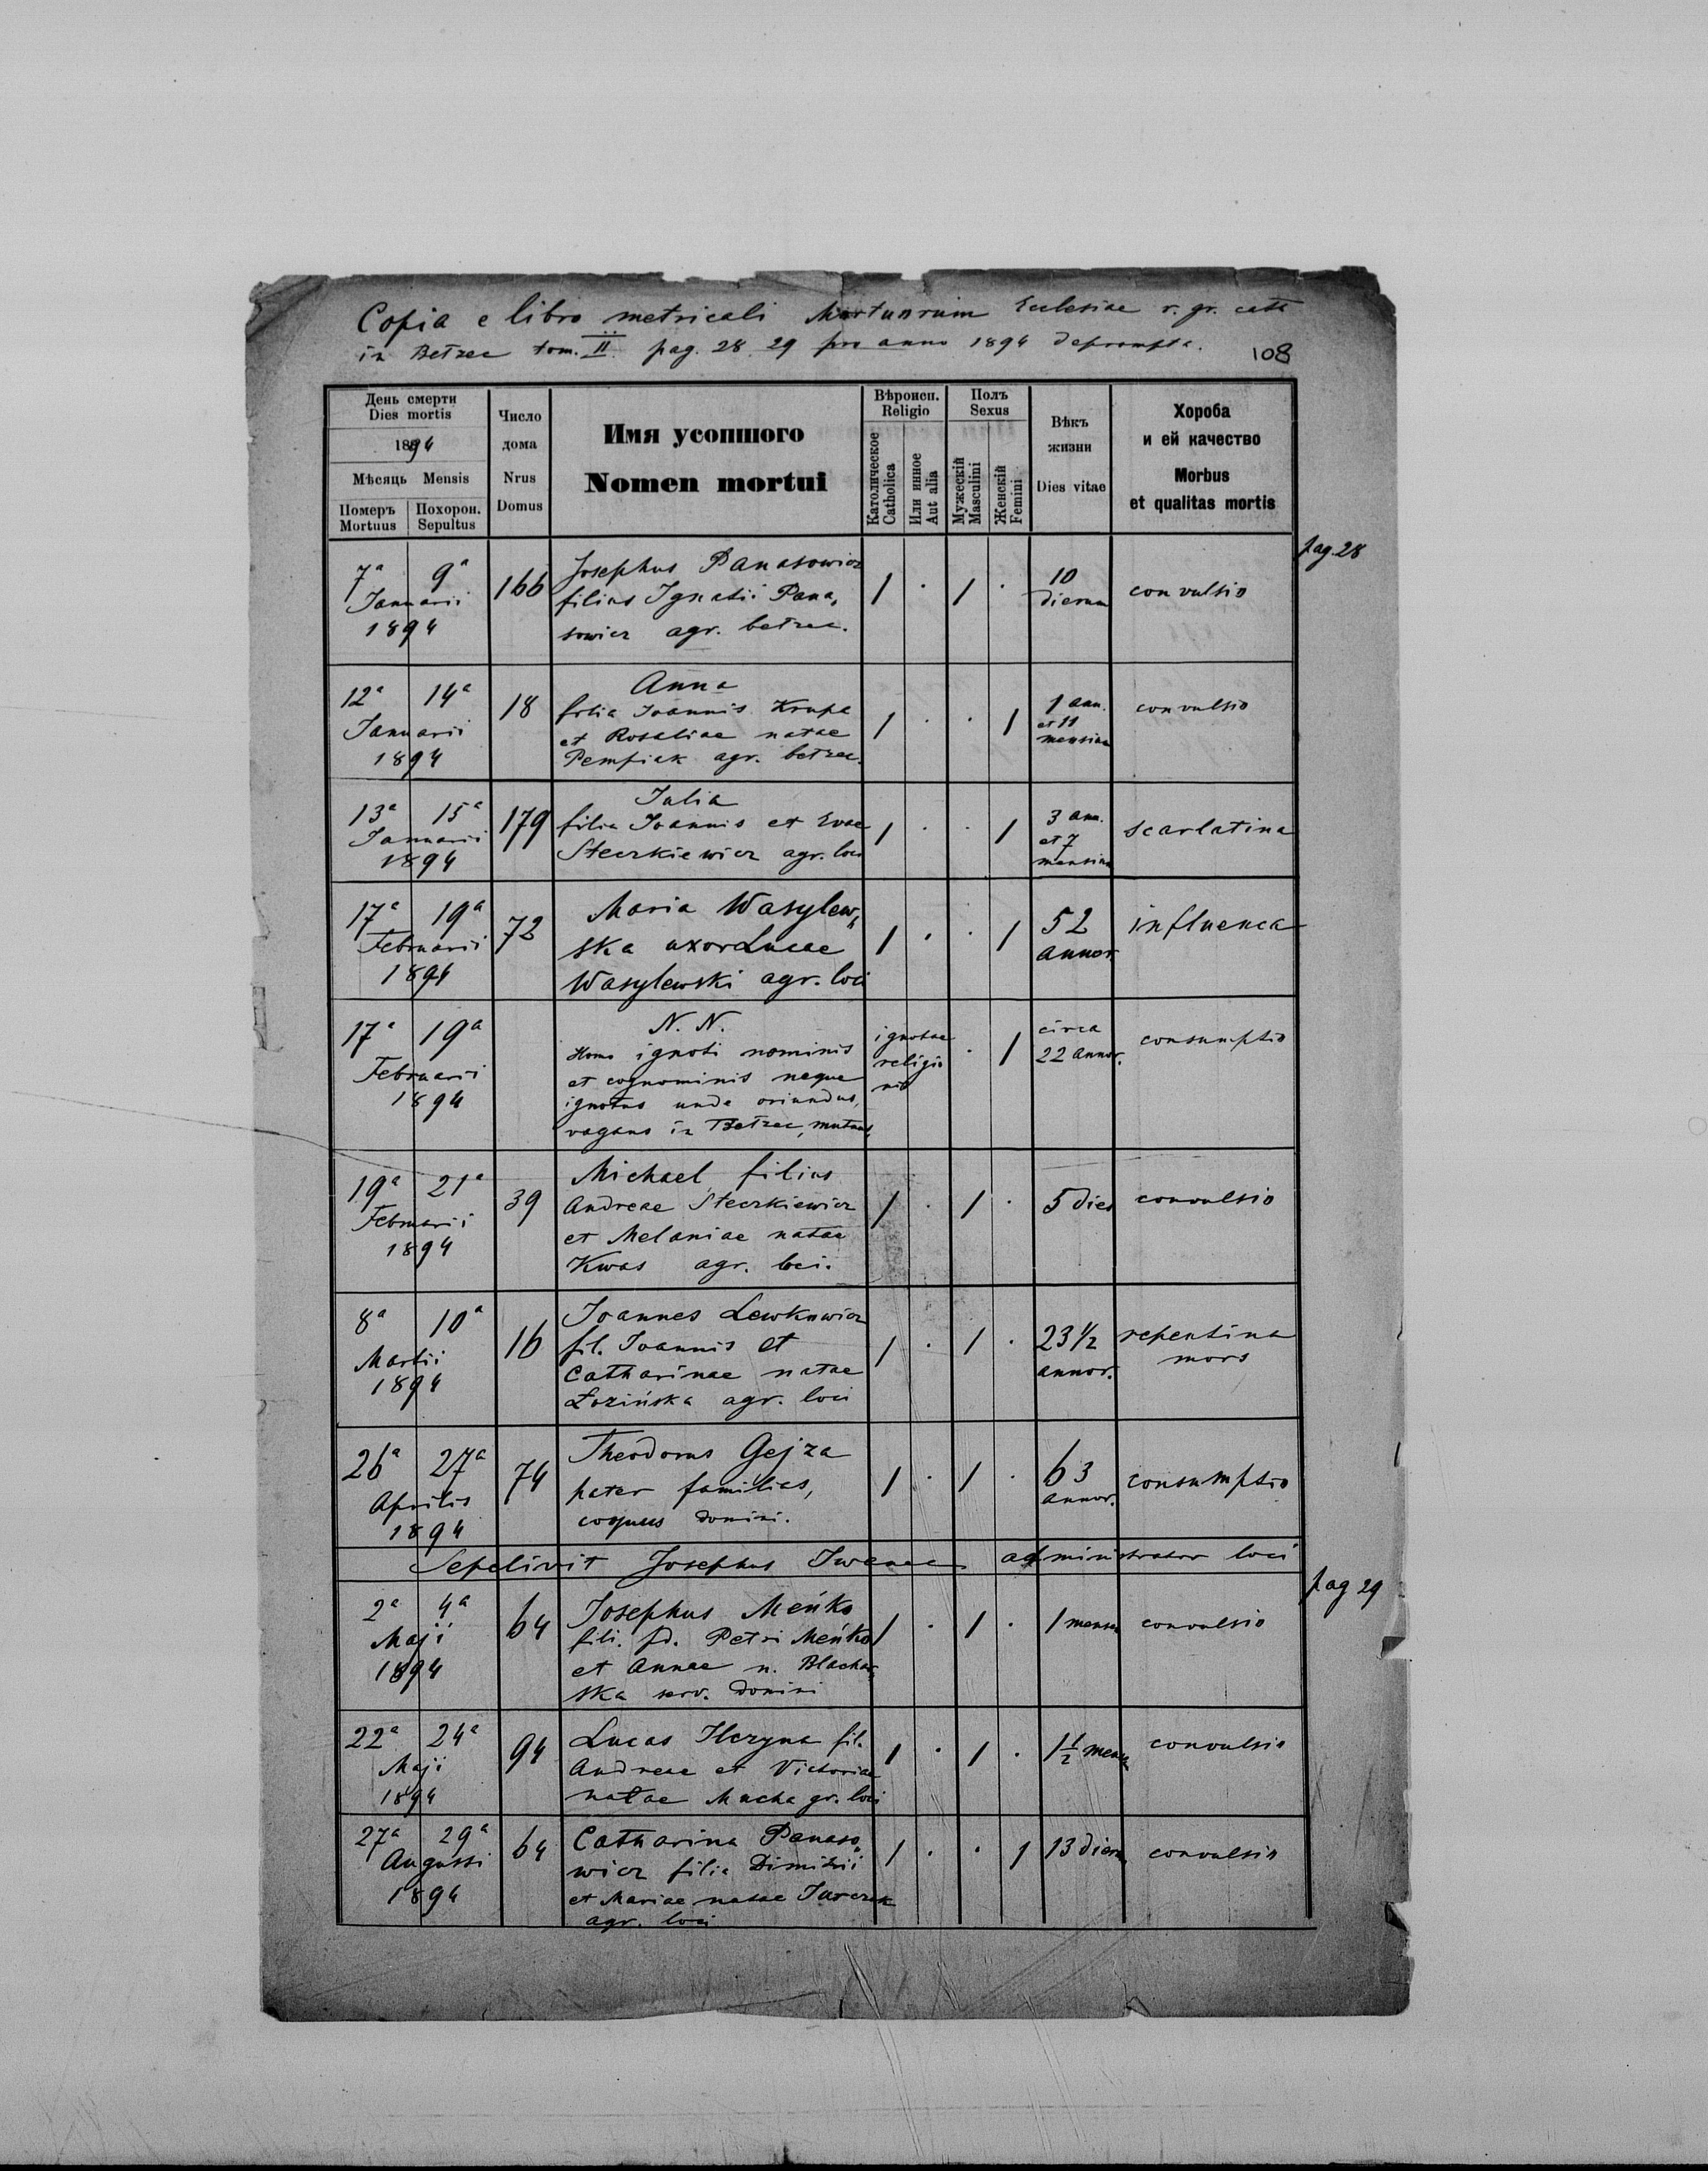 Copia e libro metricali Mortuorum Ecclesiae r. gr. cath
in Bełzec tom. II. pag. 28 29 pro anno 1894 deprompta.
108
День смерти
Dies mortis
1894
Мѣсяць Mensis
Померъ Похорон.
Mortuus Sepultus
Число
дома
Nrus
Domus
Имя усопшого
Nomen mortui
Вѣроисп.
Religio
Католическое
Catholica
Или инное
Aut alia
Полъ
Sexus
Мужескій
Masculini
Женскій
Femini
Вѣкъ
жизни
Dies vitae
Хороба
и ей качество
Morbus
et qualitas mortis
pag. 28
7ª 9ª
Januarii
1894
166
Josephus Panasowicz
filius Ignatii Pana,
sowicz agr. bełzec.
1 · 1 ·
10
dierum
convulsio
12ª 14ª
Januarii
1894
18
Anna
filia Joannis Krupa
et Rosaliae natae
Pempiak agr. bełzec.
1 · · 1
1 ann.
et 11
mensium
convulsio
13ª 15ª
Januarii
1894
179
Julia
filia Joannis et Evae
Steczkiewicz agr. loci
1 · · 1
3 ann.
et 7
mensium
scarlatina
17ª 19ª
Februarii
1894
72
Maria Wasylew„
ska uxor Lucae
Wasylewski agr. loci
1 · · 1
52
annor.
influenca
17ª 19ª
Februarii
1894
N. N.
Homo ignoti nominis
et cognominis neque
ignotus unde oriundus,
vagans in Bełzec, mutus,
ignotae
religio
nis
· 1
circa
22 annor.
consumptio
19ª 21ª
Februarii
1894
39
Michael filius
Andreae Steczkiewicz
et Melaniae natae
Kwas agr. loci.
1 · 1 ·
5 dies
convulsio
8ª 10ª
Martii
1894
16
Joannes Lewkowicz
fil. Joannis et
Catharinae natae
Łozińska agr. loci
1 · 1 ·
23 1/2
annor.
repentina
mors
26ª 27ª
Aprilis
1894
74
Theodorus Gejza
pater familias,
coquus domini.
1 · 1 ·
63
annor.
consumptio
Sepelivit Josephus administrator loci
pag 29
2ª 4ª
Maji
1894
64
Josephus Meńko
fili. fd. Petri Meńko
et Annae n. Blachar„
ska serv. domini
1 · 1 ·
1 mens
convulsio
22ª 24ª
Maji
1894
94
Lucas Ilczyna fil.
Andreae et Victoriae
natae Mucha gr. loci
1 · 1 ·
1 1/2 mens
convulsio
27ª 29ª
Augusti
1894
64
Catharina Panaso„
wicz filia Dimitrii
et Mariae natae Jurczak
agr. loci
1 · · 1
13 dierum
convulsio